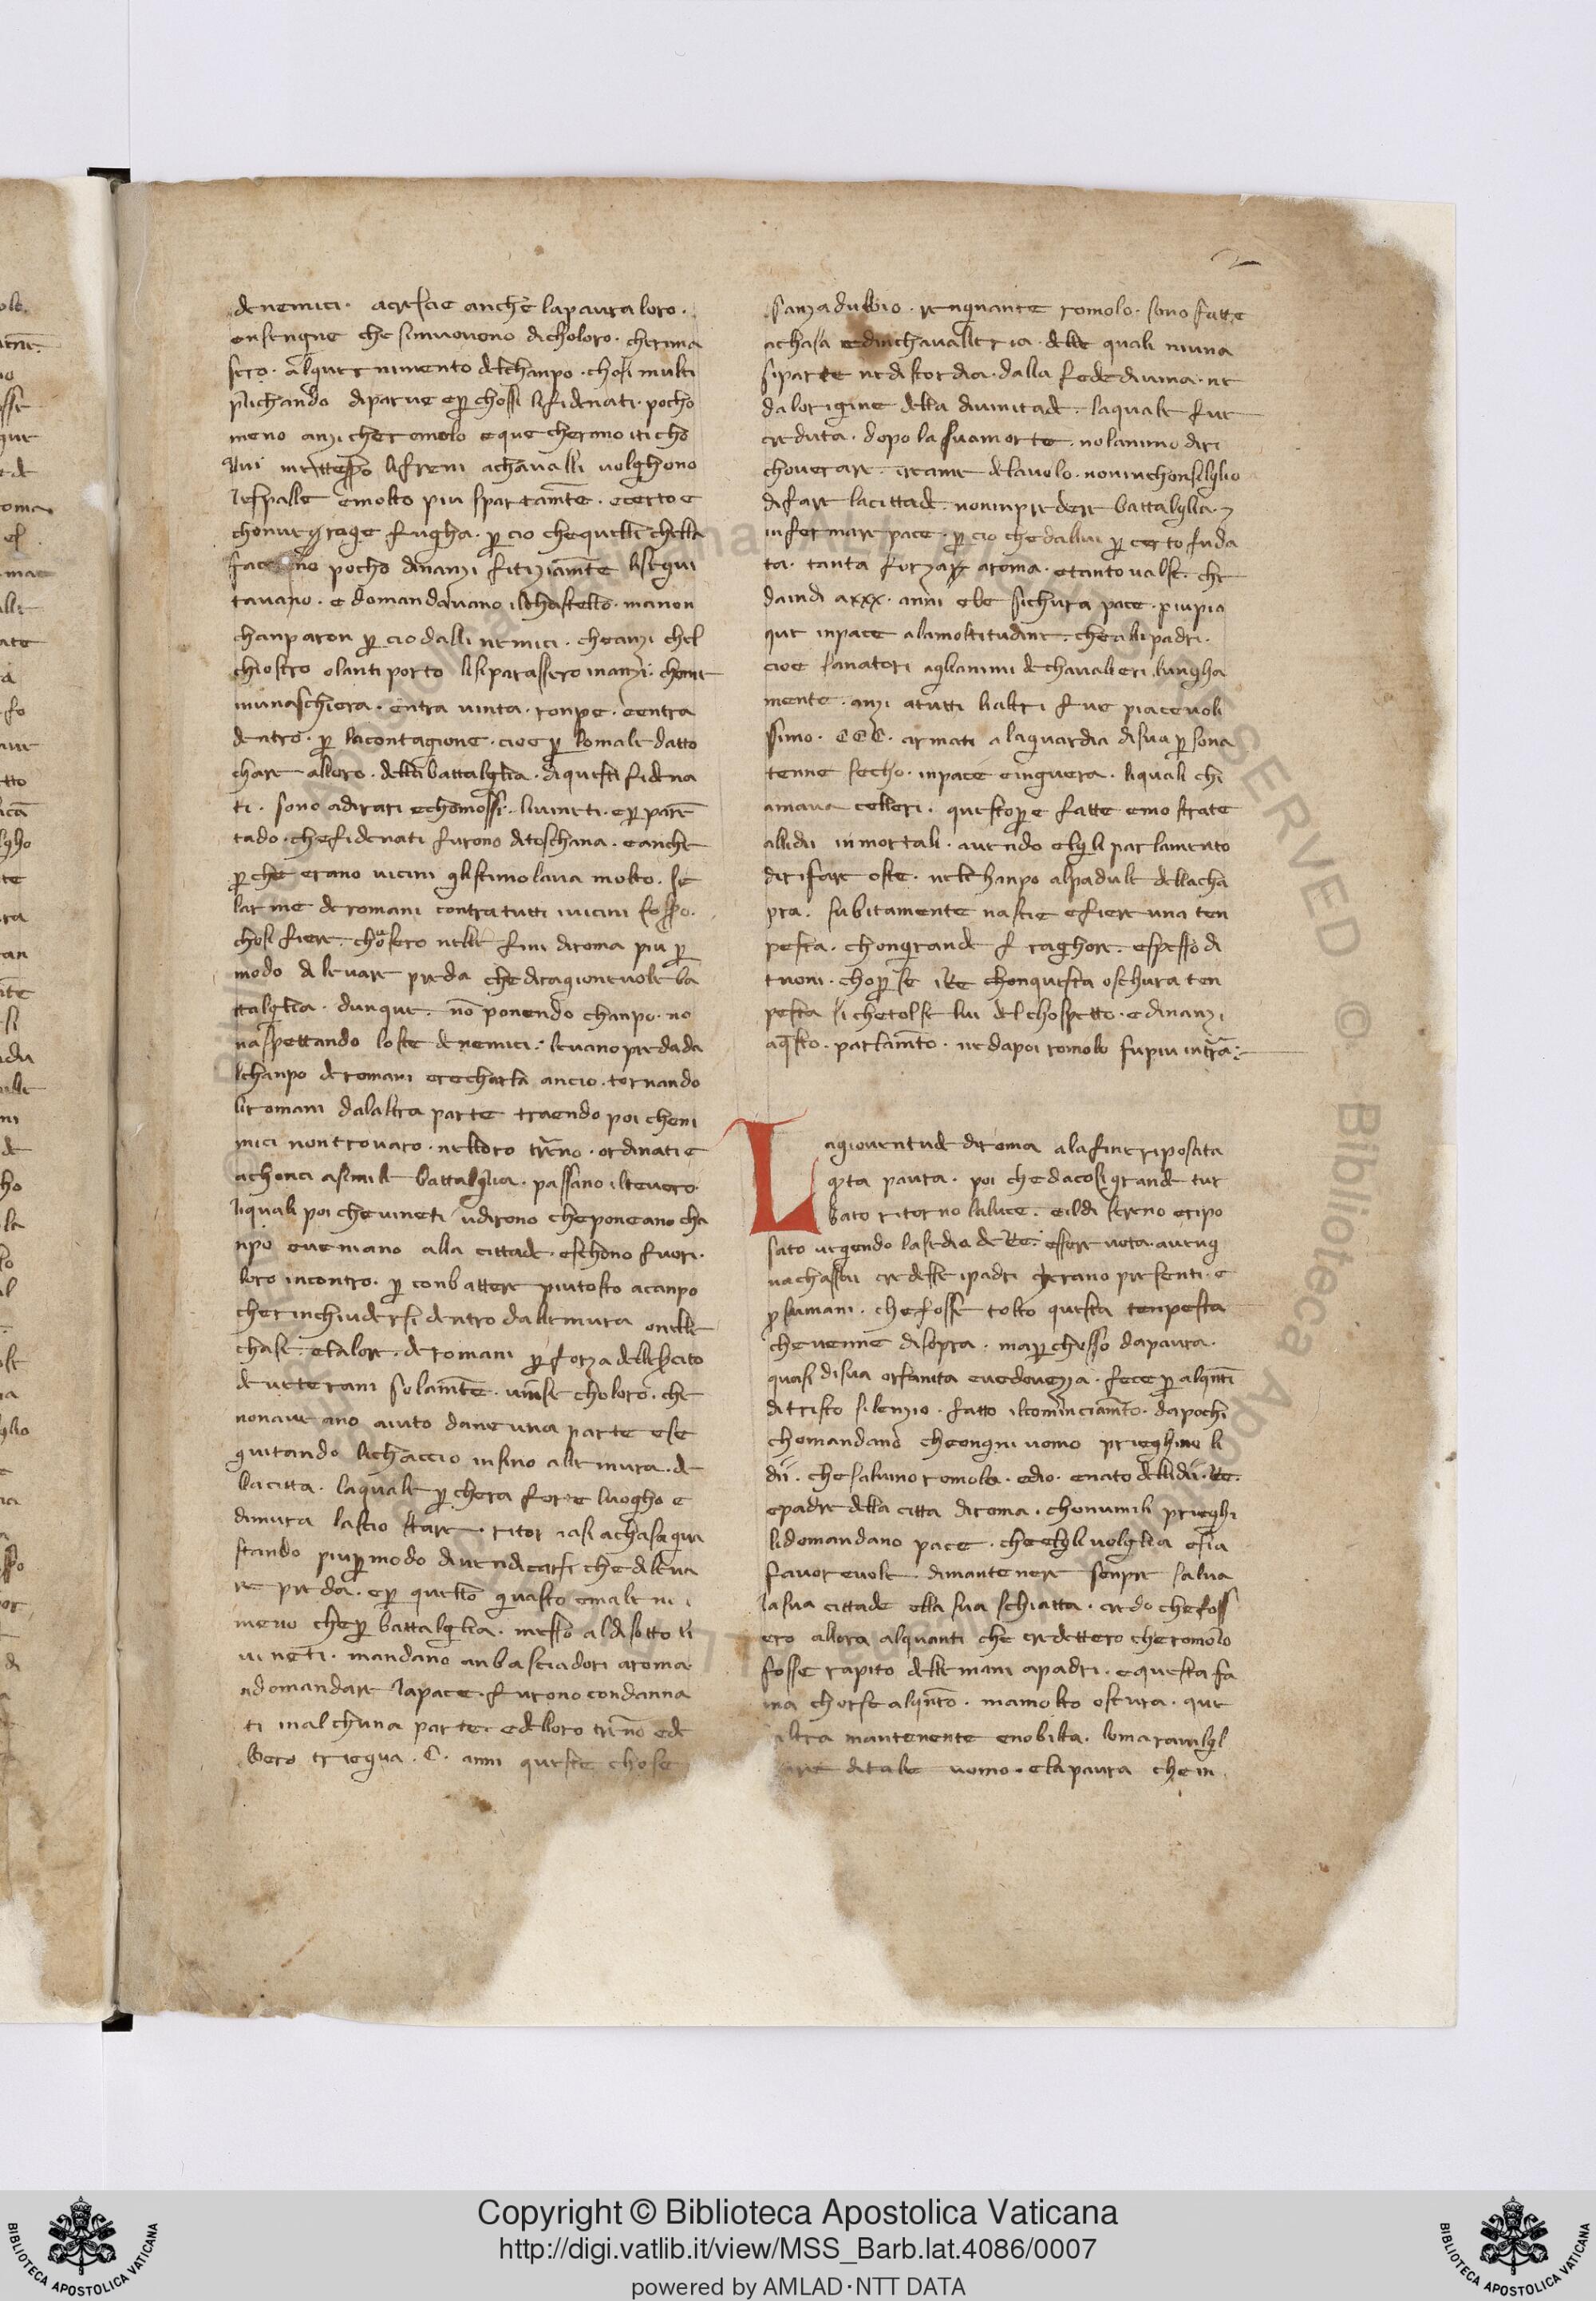 de nemici · acresscie anche la paura loro ·
ensengne che simuoveno dicholoro · cherima
sero · alguernimento delchanpo · chosi multi
plichando diparue e per chossi lifidenati · pocho
meno anzi che romolo e que cherano iti cho
llui mettessero lifreni achavalli volghono
lespalle e molto piu spartamente · ecerto e
fugha · per cio che quelli chella
pocho dinanzi fitiziamente liseguí
tavano · e domandavano ilchastello · manon
chanparon per cio dalli nemici · che anzi chel
chiostro olanti porto lisiparassero inanzi · chome
inunaschiera · entra uinta · ronpe · eentra
dentro · per lacontagione · cioe per lomale datto
chare alloro · della battalglia · diquesti fidena
ti · sono adirati echomossi · liuineti · e per paren
tado · chefidenati furono ditoschana · eanche
per che erano uicini glistimolaua molto · se
larme de romani contra tutti iuicini fosspo ·
chosi fiere · chorsero nelle fini diroma piu per
modo di leuare preda che diragioneuole ba
ttalglia · dunque · non ponendo chanpo · no
naspettando loste denemici · leuano predada
lchanpo de romani erecharla ancio · tornando
liromani dalaltra parte traendo poi cheni
mici nontrovaro · nelloro treno · ordinati e
achonci asimile battalglia · passano iltevero ·
liquali poi cheuineti udirono cheponeano cha
npo eueniano alla cittade · eschono fuori ·
loro incontro · per conbattere piutosto acanpo
cherinchiudersi dentro dallemura onelle
chase · etalore · de romani per forza dellescito
deueterani solamente · uinse choloro · che
nonaueano aiuto daneuna parte ese
guitando lichaccio insino allemura · de
lacitta · laquale per chera forte luogho e
dimura lascio stare · ritornasi achasa gua
stando piu per modo diuendicarsi che dileua
re preda · e per quello guasto emale ni
meno che per battalglia · messo aldisotto li
uineti · mandano anbasciadori aroma
adomandare lapace · furono condanna
ti inalchuna parte · edelloro treno ede
bbero triegua · C · anni queste chose
sanza dubbio · rengnante romolo · sono fatte
achasa edinchavalleria · delle quali niuna
siparte nediscordia · dalla fede diuina · ne
dalorigine della diuinitade · laquale fue
creduta · dopo la suamorte · nolanimo diri
chouerare · ireame delauolo · noninchonsilglio
difare lacittade · noninprendere battalglia · 7
infermare pace · per cio chedallui per certo fuda
ta · tanta forza aroma · etanto ualse · che
daindi axxx · anni ebe sichura pace · piupia
que inpace alamoltitudine · che alli padri ·
cioe sanatori aglianimi dechaualieri lungha
mente · anzi atutti lialtri fue piaceuoli
ssimo · CCC · armati alaguardia disua persona
tenne secho · inpace einguerra · liquali chi
amaua celleri · questopere fatte emostrate
allidii inmortali · auendo elgli parlamento
dirifare oste · nelchanpo alpadule dellacha
pra · subitamente nascie efiere una ten
pesta · chongrande fraghore · espesso di
tuoni · choperse iRe chonquesta oschura ten
pesta si chetolse lui delchospetto · edinanzi
aquesto · parlamento · nedapoi romolo fupiu interra ·
Lagiouentude diroma alafineriposata
questa paura · poi chedacosi grande tur
bato ritorno laluce · eildi sereno eripo
sato uegendo lasedia deRe · essere uota · aueng
nachassai credesse ipadri cherano presenti · e
prosumani · chefosse tolto questa tenpesta
cheuenne disopra · maperchesso dapaura ·
quasi disua orfanita euedouezza · fece per alquanti
ditristo silenzio · fatto ilcominciamento · dapochi
chomandano cheongni uomo prieghino li
dii · chesaluino romolo · edio · enato dellidii · Re ·
epadre della citta diroma · chonumili prieghi
lidomandano pace · cheelgli uolglia esia
fauoreuole · dimantenere senpre salua
lasua cittade ella sua schiatta · credo chefoss
ero allora alquanti che credettero cheromolo
fosse rapito dellemani apadri · equesta fa
ma chorse alquanto · mamolto oscura · que
altra mantenente enobilta · lomarauilgl
iare ditale uomo · elapaura chein
Copyright © Biblioteca Apostolica Vaticana
http://digi.vatlib.it/view/MSS_Barb.lat.4086/0007
powered by AMLAD·NTT DATA
BIBLIOTECA APOSTOLICA VATICANA
BIBLIOTECA APOSTOLICA VATICANA